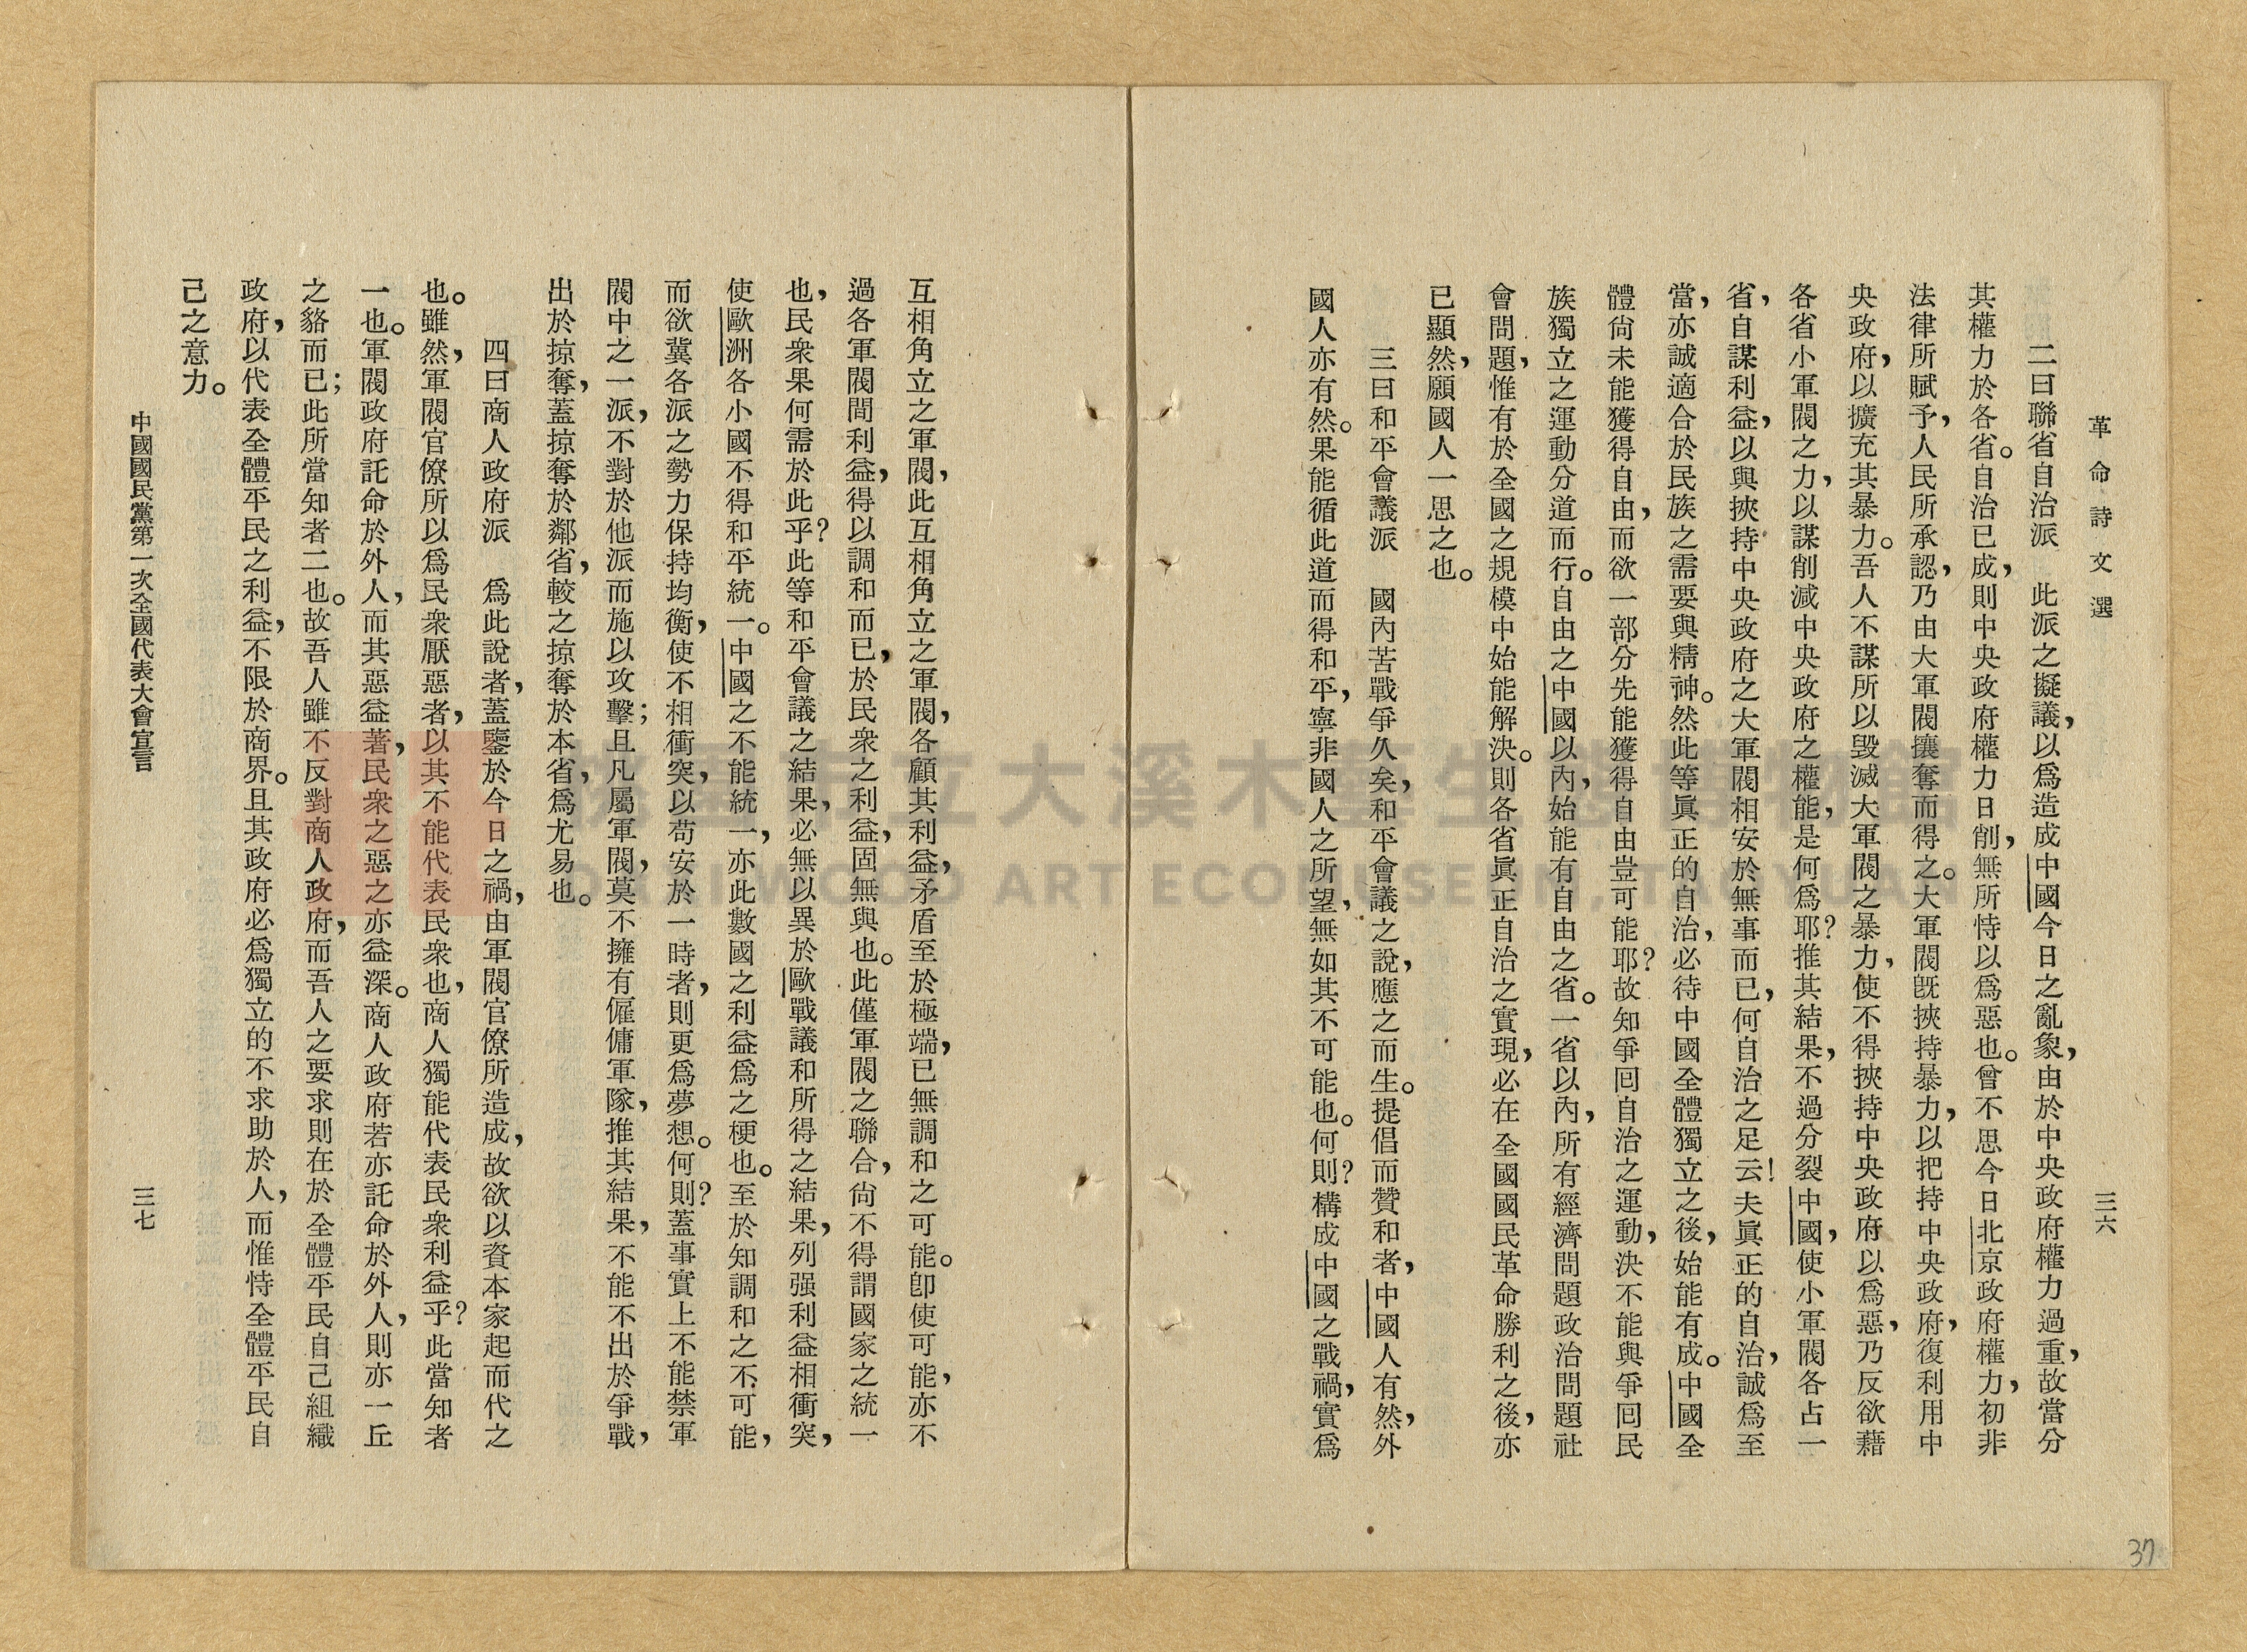 革命詩文選
三六
二曰聯省自治派　此派之擬議，以爲造成中國今日之亂象，由於中央政府權力過重，故當分
其權力於各省。自治已成，則中央政府權力日削，無所恃以爲惡也。曾不思今日北京政府權力，初非
法律所賦予，人民所承認，乃由大軍閥攘奪而得之。大軍閥旣挾持暴力，以把持中央政府，復利用中
央政府，以擴充其暴力。吾人不謀所以毀滅大軍閥之暴力，使不得挾持中央政府以爲惡，乃反欲藉
各省小軍閥之力，以謀削減中央政府之權能，是何爲耶？推其結果，不過分裂中國，使小軍閥各占一
省，自謀利益，以與挾持中央政府之大軍閥相安於無事而已，何自治之足云！夫眞正的自治，誠爲至
當，亦誠適合於民族之需要與精神。然此等眞正的自治，必待中國全體獨立之後，始能有成。中國全
體尙未能獲得自由，而欲一部分先能獲得自由豈可能耶？故知爭囘自治之運動，決不能與爭囘民
族獨立之運動分道而行。自由之中國以內，始能有自由之省。一省以內，所有經濟問題政治問題社
會問題，惟有於全國之規模中始能解決。則各省眞正自治之實現，必在全國國民革命勝利之後，亦
已顯然，願國人一思之也。
三曰和平會議派　國內苦戰爭久矣，和平會議之說，應之而生。提倡而贊和者，中國人有然，外
國人亦有然。果能循此道而得和平，寧非國人之所望，無如其不可能也。何則？構成中國之戰禍，實爲
互相角立之軍閥，此互相角立之軍閥，各顧其利益，矛盾至於極端，已無調和之可能。卽使可能，亦不
過各軍閥間利益，得以調和而已，於民衆之利益，固無與也。此僅軍閥之聯合，尙不得謂國家之統一
也，民衆果何需於此乎？此等和平會議之結果，必無以異於歐戰議和所得之結果，列强利益相衝突，
使歐洲各小國不得和平統一。中國之不能統一，亦此數國之利益爲之梗也。至於知調和之不可能，
而欲冀各派之勢力保持均衡，使不相衝突，以苟安於一時者，則更爲夢想。何則？蓋事實上不能禁軍
閥中之一派，不對於他派而施以攻擊；且凡屬軍閥，莫不擁有僱傭軍隊，推其結果，不能不出於爭戰，
出於掠奪，蓋掠奪於鄰省，較之掠奪於本省，爲尤易也。
四曰商人政府派　爲此說者，蓋鑒於今日之禍，由軍閥官僚所造成，故欲以資本家起而代之
也。雖然，軍閥官僚所以爲民衆厭惡者，以其不能代表民衆也，商人獨能代表民衆利益乎？此當知者
一也。軍閥政府託命於外人，而其惡益著，民衆之惡之亦益深。商人政府若亦託命於外人，則亦一丘
之貉而已；此所當知者二也。故吾人雖不反對商人政府，而吾人之要求則在於全體平民自己組織
政府，以代表全體平民之利益，不限於商界。且其政府必爲獨立的不求助於人，而惟恃全體平民自
己之意力。
中國國民黨第一次全國代表大會宣言
三七
37
桃園市立大溪木藝生態博物館
DAXI WOOD ART ECOMUSEUM, TAOYUAN